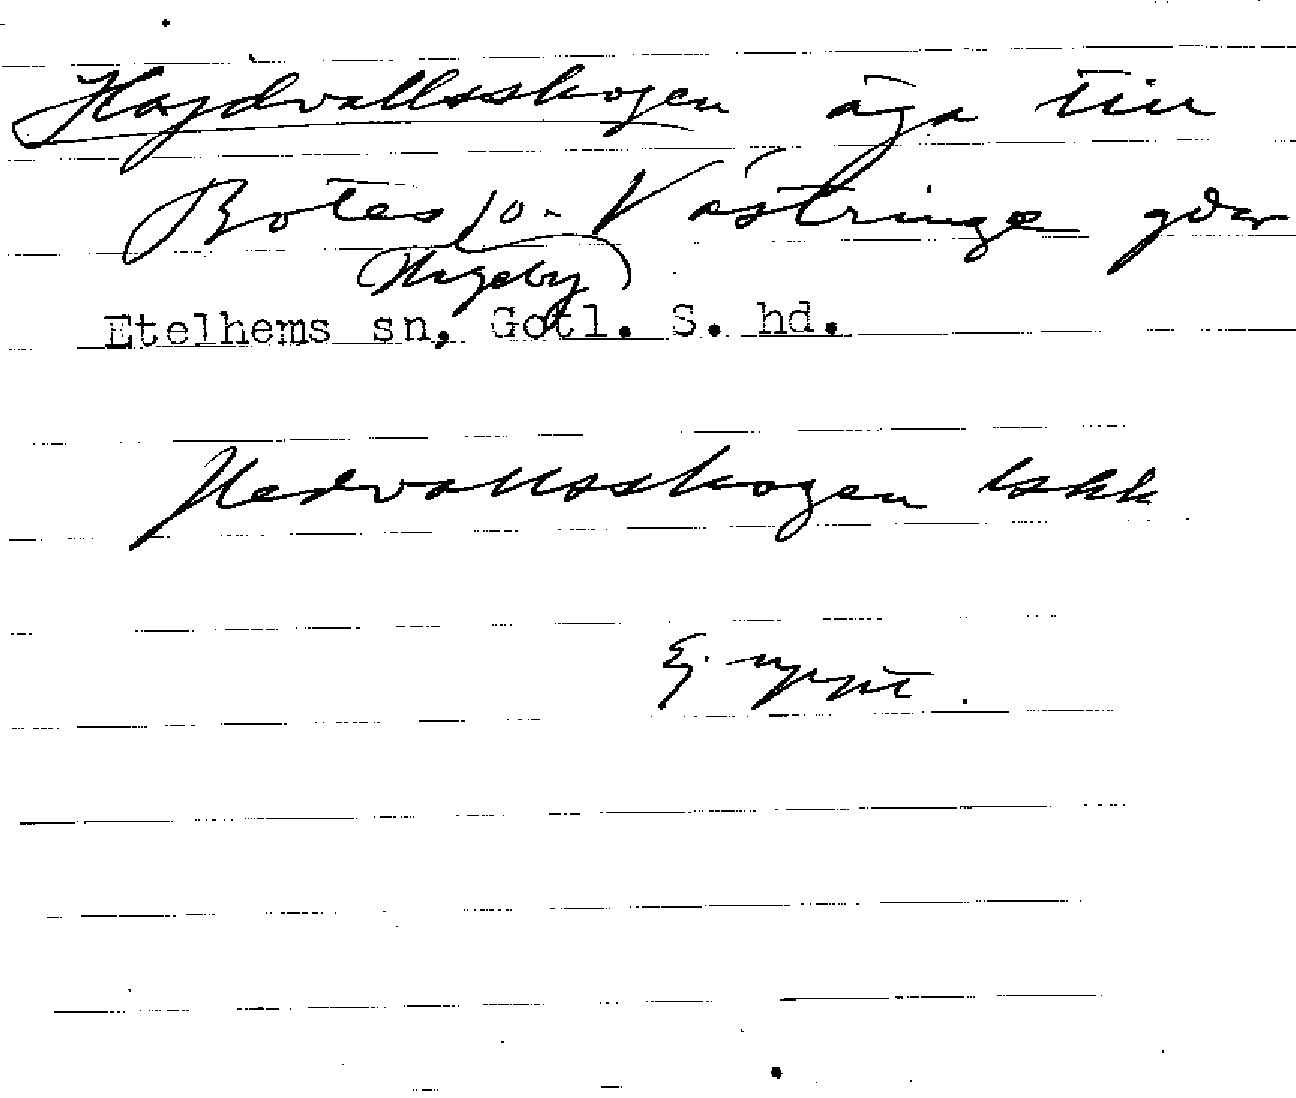 Hajdvallsskogen äga till
Botes o. Västringe gdar
(Hageby)
Etelhems sn, Gotl. S. hd.
Hedvallsskogen lskk
Ej uppt.